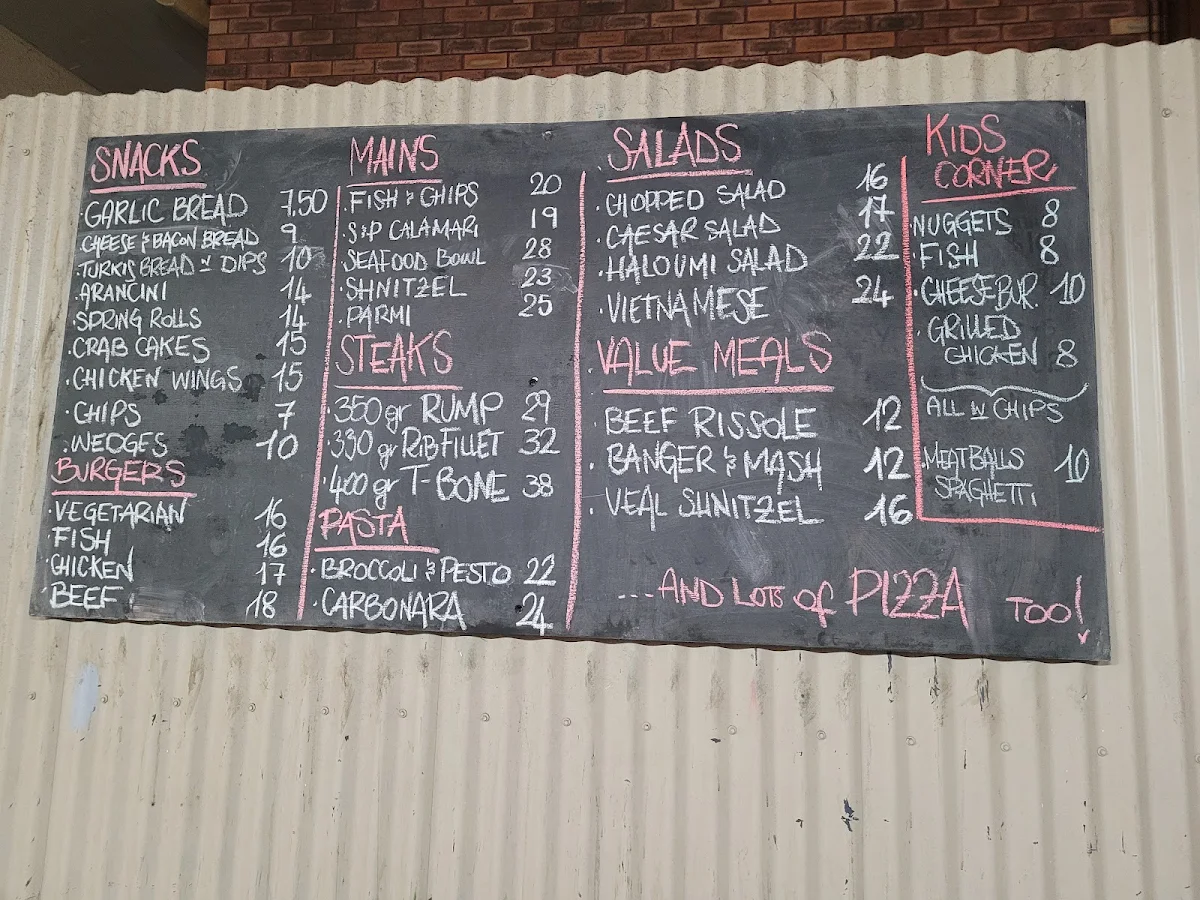 SNACKS
·GARLIC BREAD 7.50
·CHEESE & BACON BREAD 9
·TURKIS BREAD W DIPS 10
·ARANCINI 14
·SPRING ROLLS 14
·CRAB CAKES 15
·CHICKEN WINGS 15
·CHIPS 7
·WEDGES 10
BURGERS
·VEGETARIAN 16
·FISH 16
·CHICKEN 17
·BEEF 18
MAINS
·FISH & CHIPS 20
·S&P CALAMARI 19
·SEAFOOD BOWL 28
·SHNITZEL 23
·PARMI 25
STEAKS
·350 gr RUMP 29
·330 gr RIB FILLET 32
·400 gr T-BONE 38
PASTA
·BROCCOLI & PESTO 22
·CARBONARA 24
SALADS
·CHOPPED SALAD 16
·CAESAR SALAD 17
·HALOUMI SALAD 22
·VIETNAMESE 24
VALUE MEALS
·BEEF RISSOLE 12
·BANGER & MASH 12
·VEAL SHNITZEL 16
KIDS
CORNER
·NUGGETS 8
·FISH 8
·CHEESEBUR. 10
·GRILLED
CHICKEN 8
ALL W CHIPS
·MEATBALLS 10
SPAGHETTI
...AND LOTS of PIZZA TOO!